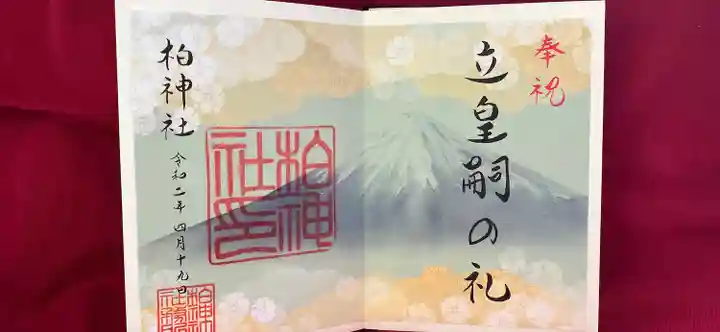 奉祝
立皇嗣の礼
柏神社
令和二年四月十九日
柏神
社印